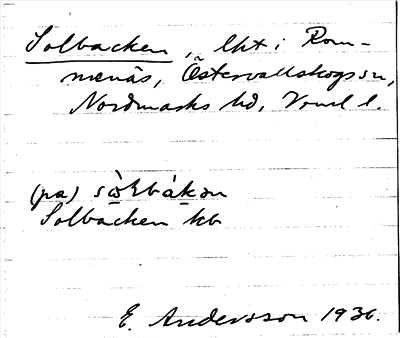 Solbacken, lht i Rom-
menäs, Östervallskogs sn,
Nordmarks hd, Vrml l.
(pa) sò̤lbàkən
Solbacken kb
E. Andersson 1936.